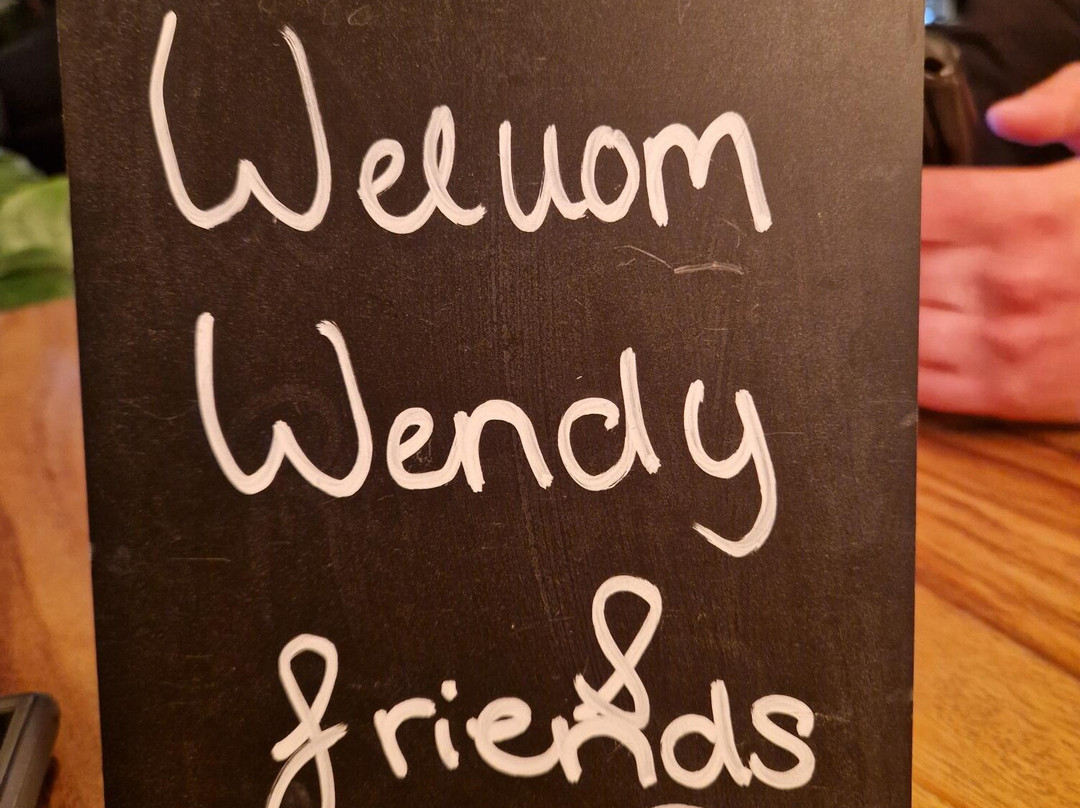 Weluom
Wendy
&
friends